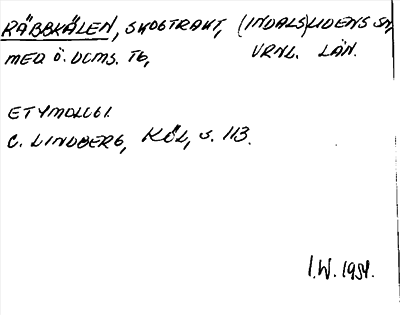 RÄBBKÄLEN, SKOGTRAKT, (INDALS)LIDENS SN,
MED. Ö. DOMS. TG, VRNL. LÄN.
ETYMOLOGI.
C. LINDBERG, KÖL, s. 113.
I.W. 1954.